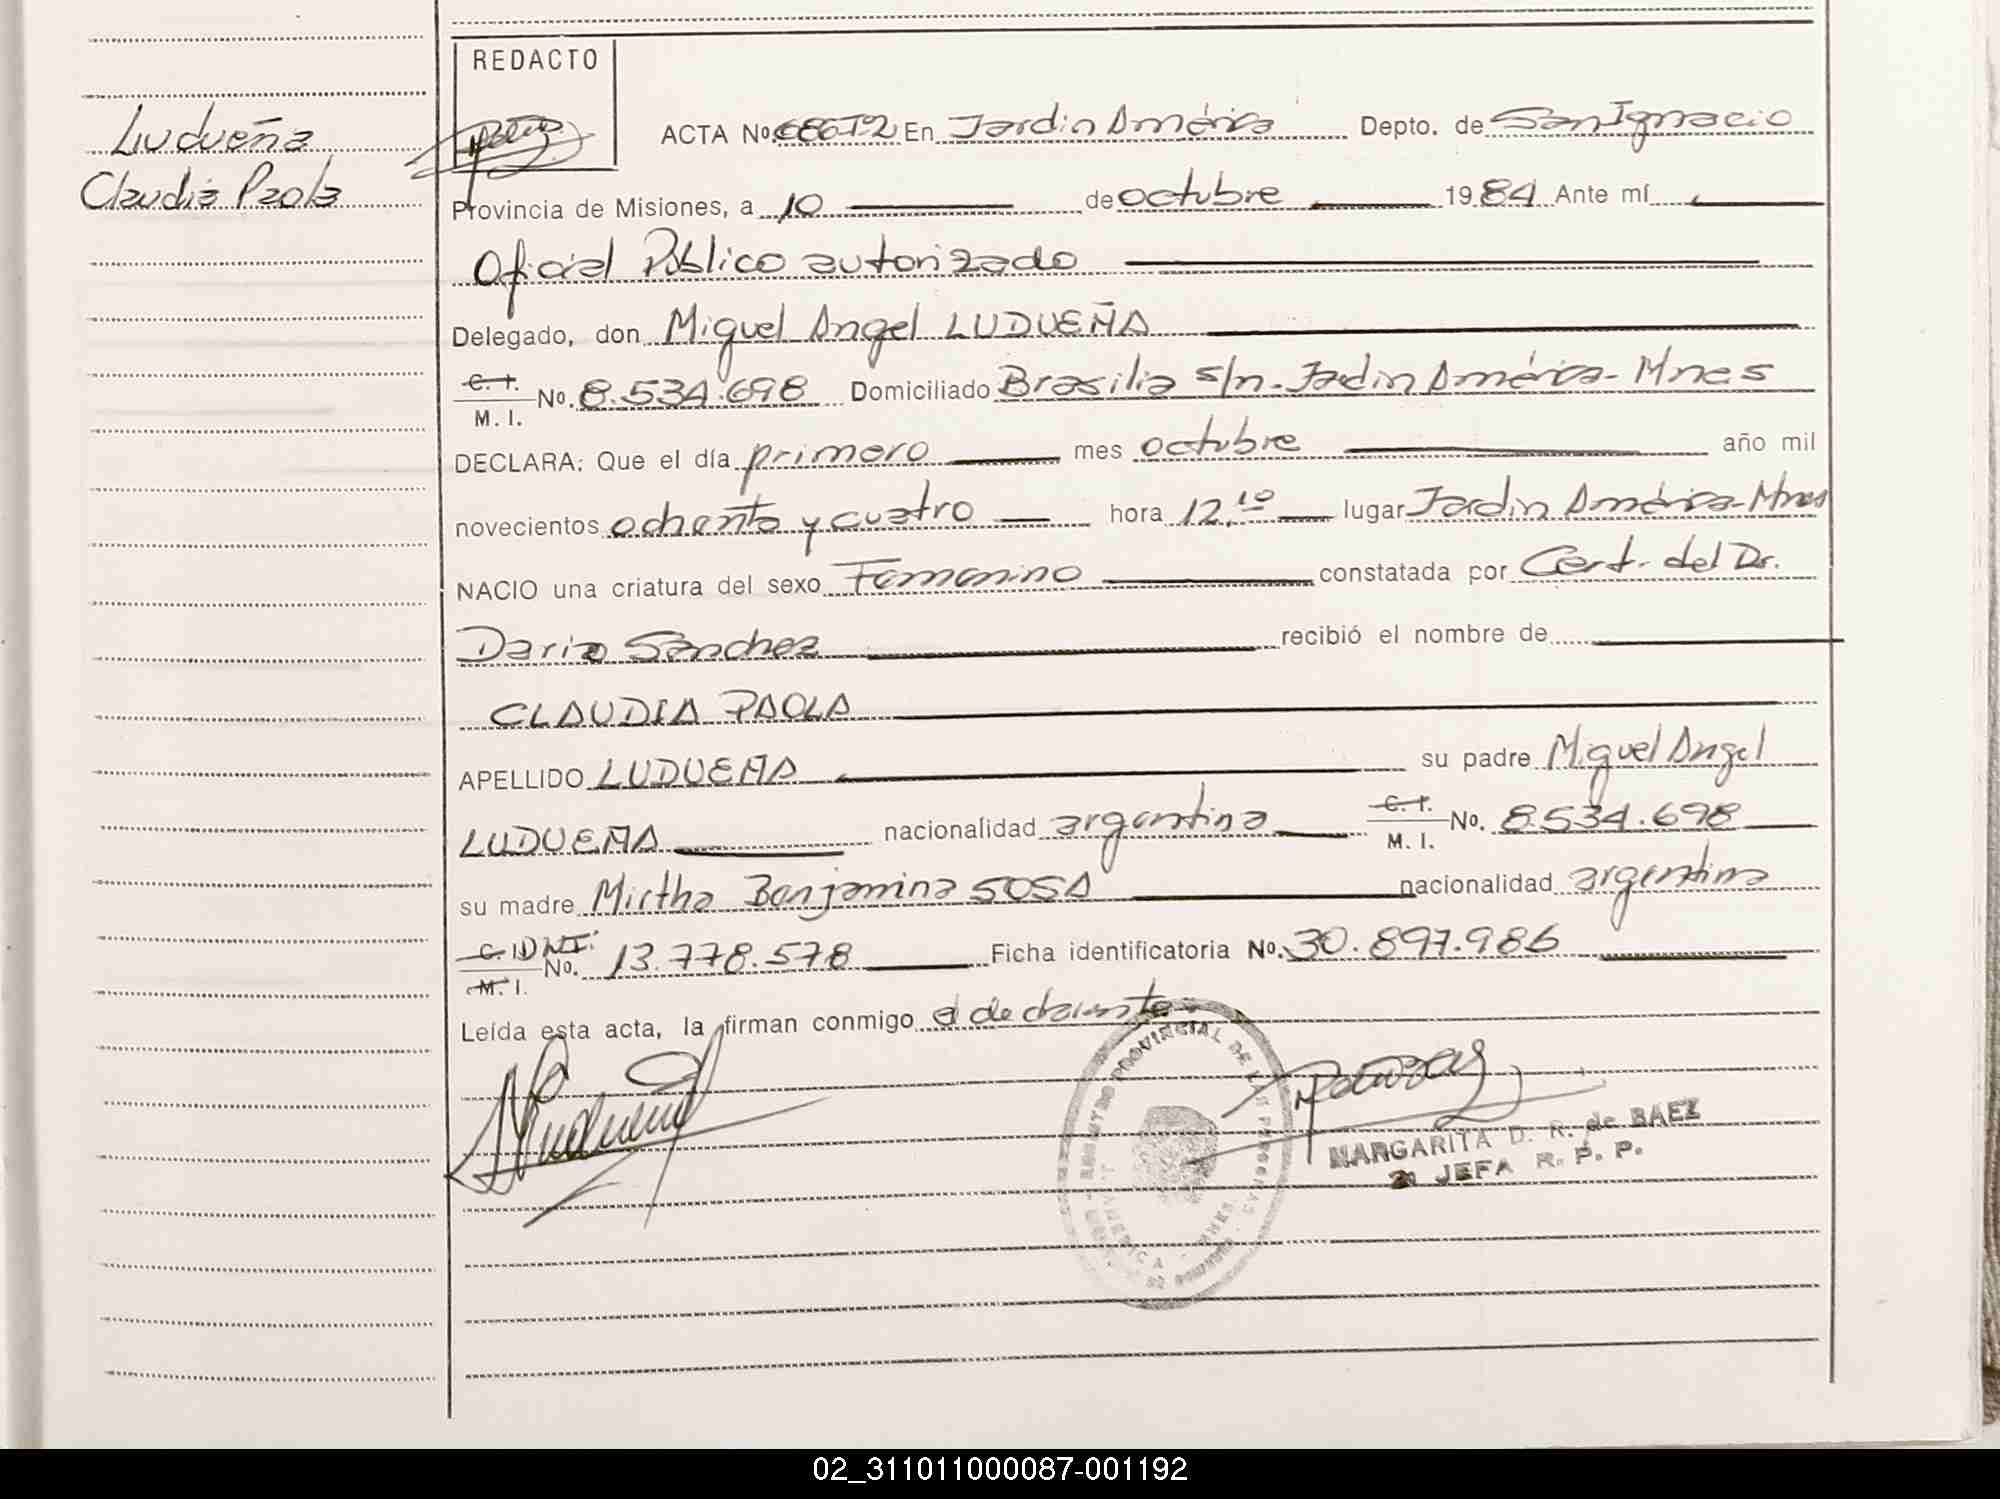 REDACTO
Ludueña
Claudia Paola
ACTA No. 686T2 En Jardin América Depto. de San Ignacio
Provincia de Misiones, a 10 de octubre 1984 Ante mí
Oficial Público autorizado
Delegado, don Miguel Angel LUDUEÑA
C. I. M. I. No. 8.534.698 Domiciliado Brasilia s/n - Jardin América - Mnes
DECLARA: Que el día primero mes octubre año mil
novecientos ochenta y cuatro hora 12,10 lugar Jardin América - Mnes
NACIO una criatura del sexo Femenino constatada por Cert. del Dr.
Dario Sánchez recibió el nombre de
CLAUDIA PAOLA
APELLIDO LUDUEÑA su padre Miguel Angel
LUDUEÑA nacionalidad argentina C. I. M. I. No. 8.534.698
su madre Mirtha Benjamina SOSA nacionalidad argentina
C. I. DNI. M. I. No. 13.778.578 Ficha identificatoria No. 30.897.986
Leída esta acta, la firman conmigo el declarante
REGISTRO PROVINCIAL DE LAS PERSONAS
AMERICA - MNES
MARGARITA D. R. de BAEZ
JEFA R. P. P.
02_311011000087-001192